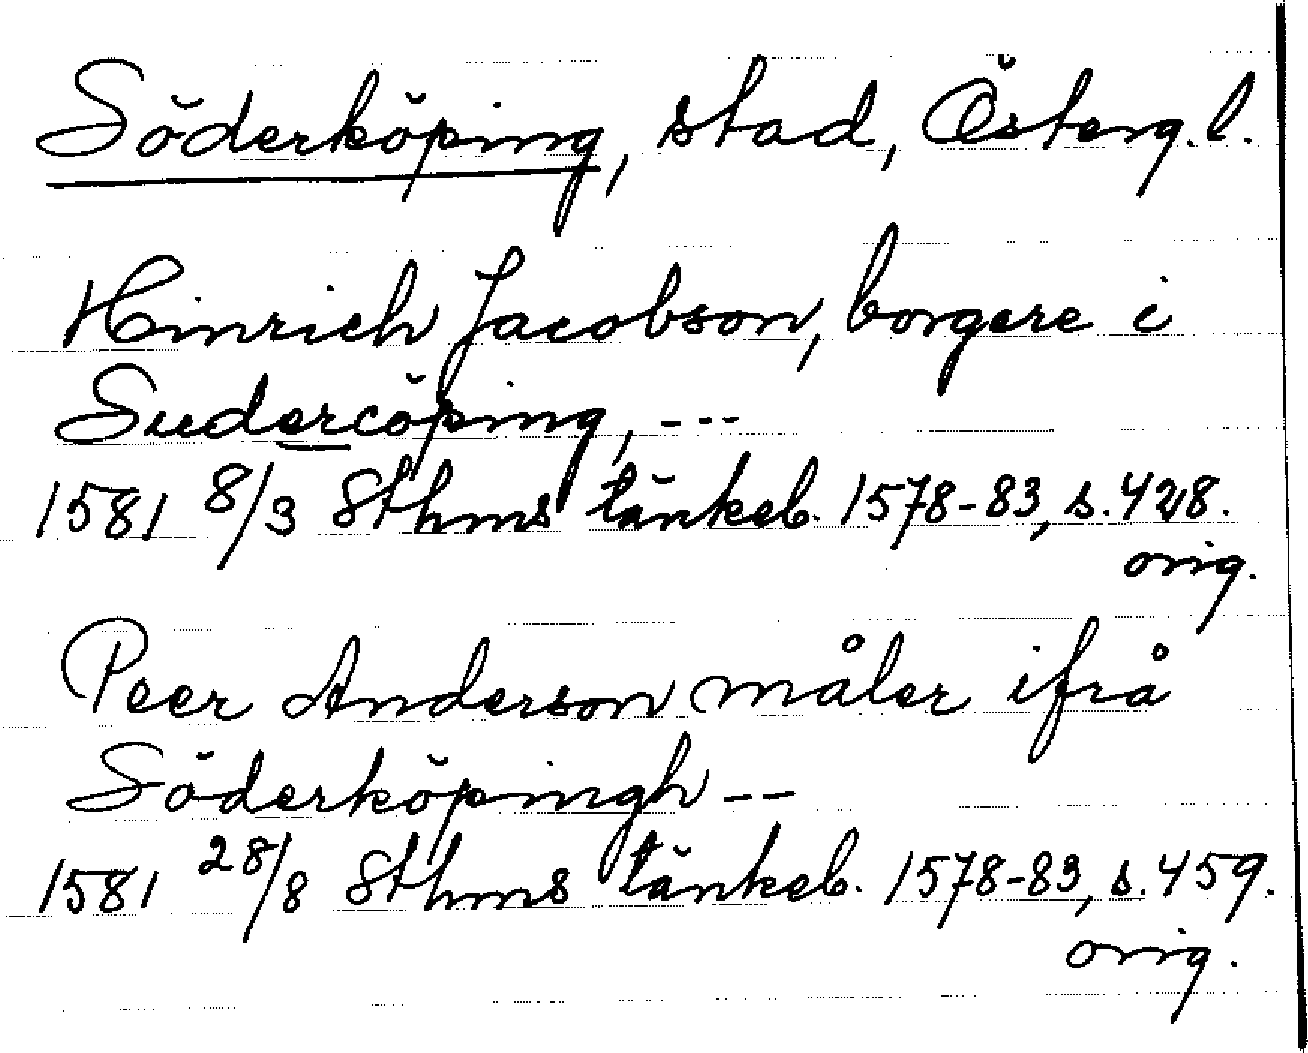 Söderköping, stad, Österg. l.
Hinrich Jacobson, borgere i
Sudercöping, ---
1581 8/3 Sthms tänkeb. 1578-83, s. 428.
orig.
Peer Anderson måler ifrå
Söderköpingh --
1581 28/8 Sthms tänkeb. 1578-83, s. 459.
orig.